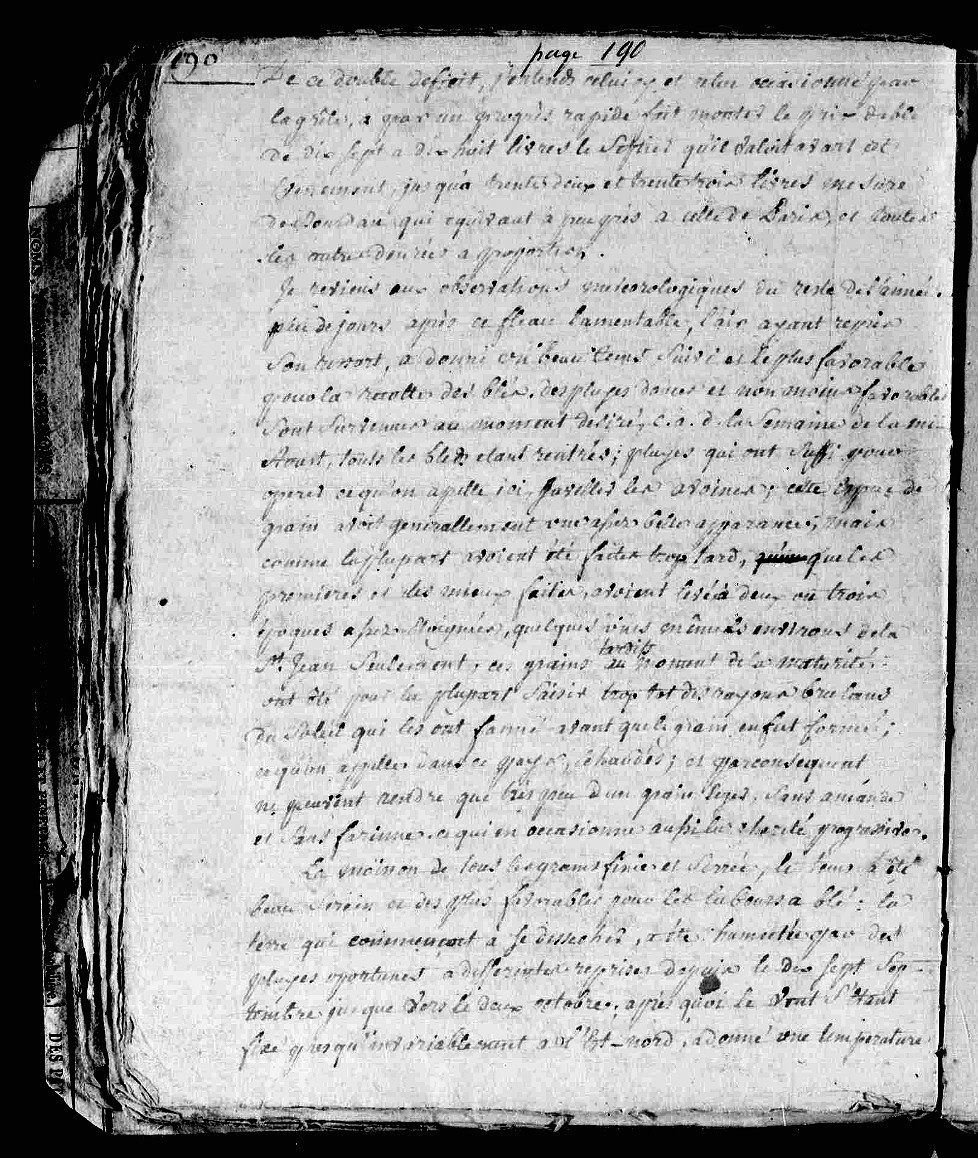 190
page 190
De ce double deficit, j'entends celui cy, et celui occasionné par
la grêle, a par un progrès rapide fait monter le prix de blé
de dix sept a dix huit livres le Septier qu'il valoit avant cet
Evenement, jusqu'a trente deux et trente trois livres mesure
de Dourdan qui equivaut à peu près a celle de Paris, et toutes
les autres denrées a proportion.
Je reviens aux observations méteorologiques du reste de l'année.
peu de jours après ce fleau lamentable, l'air ayant repris
Son ressort, a donné un beau tems Suivi et le plus favorable
pour la recolte des blés. des pluyes douces et non moins favorables
Sont Survenues au moment desiré, c. a. d. la Semaine de la mi-
Aoust, touts les bleds etant rentrés; pluyes qui ont Suffi pour
operer ce qu'on apelle ici, Javeller les avoines; cette espece de
grain avoit generallement une assez belle apparance; mais
comme la plupart avoient été faites trop tard, que les
premieres et les mieux faites, avoient levé à deux ou trois
époques assez éloignées, quelques unes même aux environs de la
St. Jean Seulement, ces grains tardifs au moment de la maturité
ont été pour la plupart Saisis trop tot des rayons brulans
du Soleil qui les ont fanné avant que le grain en fut formé;
ce qu'on appelle dans ce pays, échaudés; et par consequent
ne peuvent rendre que très peu d'un grain leger, Sans amande
et Sans farinne. ce qui en occasionne aussi la cherté progressive.
La moisson de tous les grains finie et Serrée, le tems a été
beau Serein et des plus favorables pour les labours a blé: la
terre qui commençoit à se dessecher, a été humectée par des
pluyes oportunes a differentes reprises depuis le dix sept Sep-
tembre jusque vers le deux octobre, après quoi le Vent S'etant
fixé presqu'invariablement a l'Est-nord, a donné une temperature